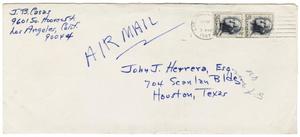 J. B. Casas
9601 So. Moore St
Los Angeles, Calif.
90044
AIR MAIL
John J. Herrera, Esq.
704 Scanlan Bldg.
Houston, Texas